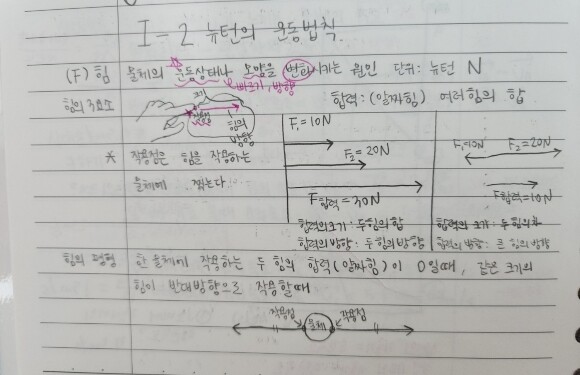 I-2 뉴턴의 운동법칙.
(F) 힘 물체의 운동상태나 모양을 변화시키는 원인 단위: 뉴턴 N
빠르기, 방향
힘의 3요소
크기
작용점
힘의 방향
합력: (알짜힘) 여러힘의 합
* 작용점은 힘을 작용하는
물체에 찍는다
F₁=10N
F₂=20N
F합력=30N
합력의크기: 두힘의합
합력의방향: 두힘의방향
F₁=10N F₂=20N
F합력=10N
합력의 크기: 두힘의차
합력의 방향: 큰 힘의방향
힘의 평형 한 물체에 작용하는 두 힘의 합력(알짜힘)이 0일때, 같은 크기의
힘이 반대방향으로 작용할때
작용점 물체 작용점